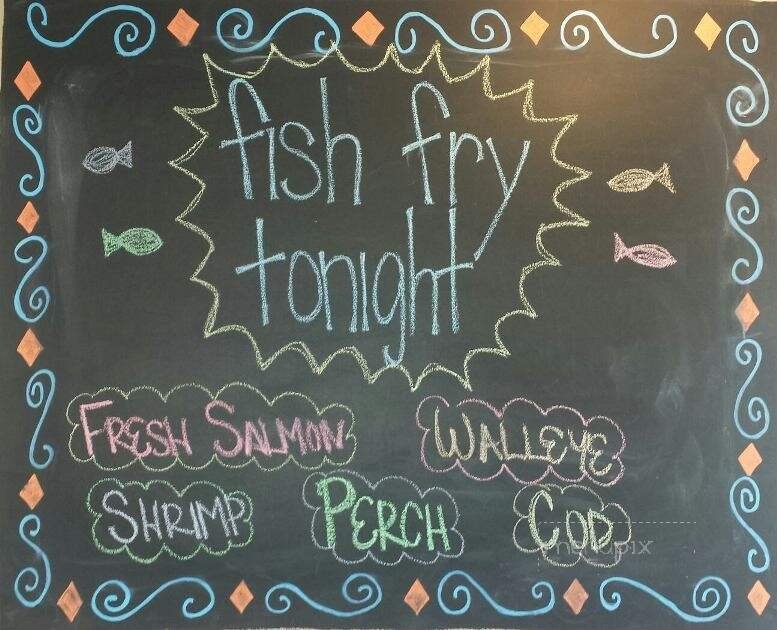 fish fry
tonight
FRESH SALMON WALLEYE
SHRIMP PERCH COD